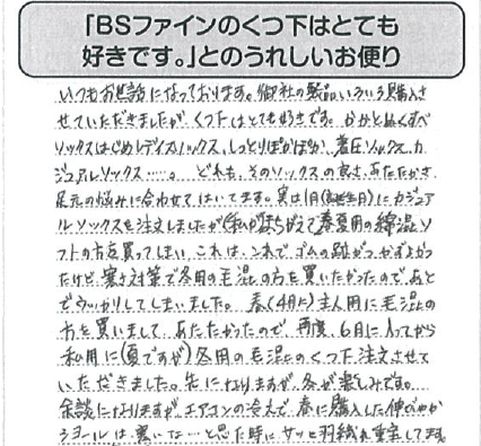 「BSファインのくつ下はとても
好きです。」とのうれしいお便り
いつもお世話になっております。御社の製品いろいろ購入さ
せていただきましたが、くつ下はとても好きです。かかとぬくすべ
ソックスはじめレディスソックス、しっとりぽかぽか、着圧ソックス、カ
ジュアルソックス……。どれも、そのソックスの良さ、あたたかさ、
足元の悩みに合わせてはいてます。実は1月(誕生月)にカジュア
ルソックスを注文しましたが(私が)まちがえて春夏用の綿混ソ
フトの方を買ってしまい、これは、これでゴムの跡がつかずよかっ
たけど、寒さ対策で冬用の毛混の方を買いたかったので、あと
でウッカリしてしまいました。春(4月に)主人用に毛混の
方を買いまして、あたたかったので、再度、6月に入ってから
私用に(夏ですが)冬用の毛混のくつ下注文させて
いただきました。先になりますが、冬が楽しみです。
余談になりますが、エアコンの冷えで、春に購入した伸びやか
ショールは、寒いな…と思た時にサッと羽織れ重宝してます